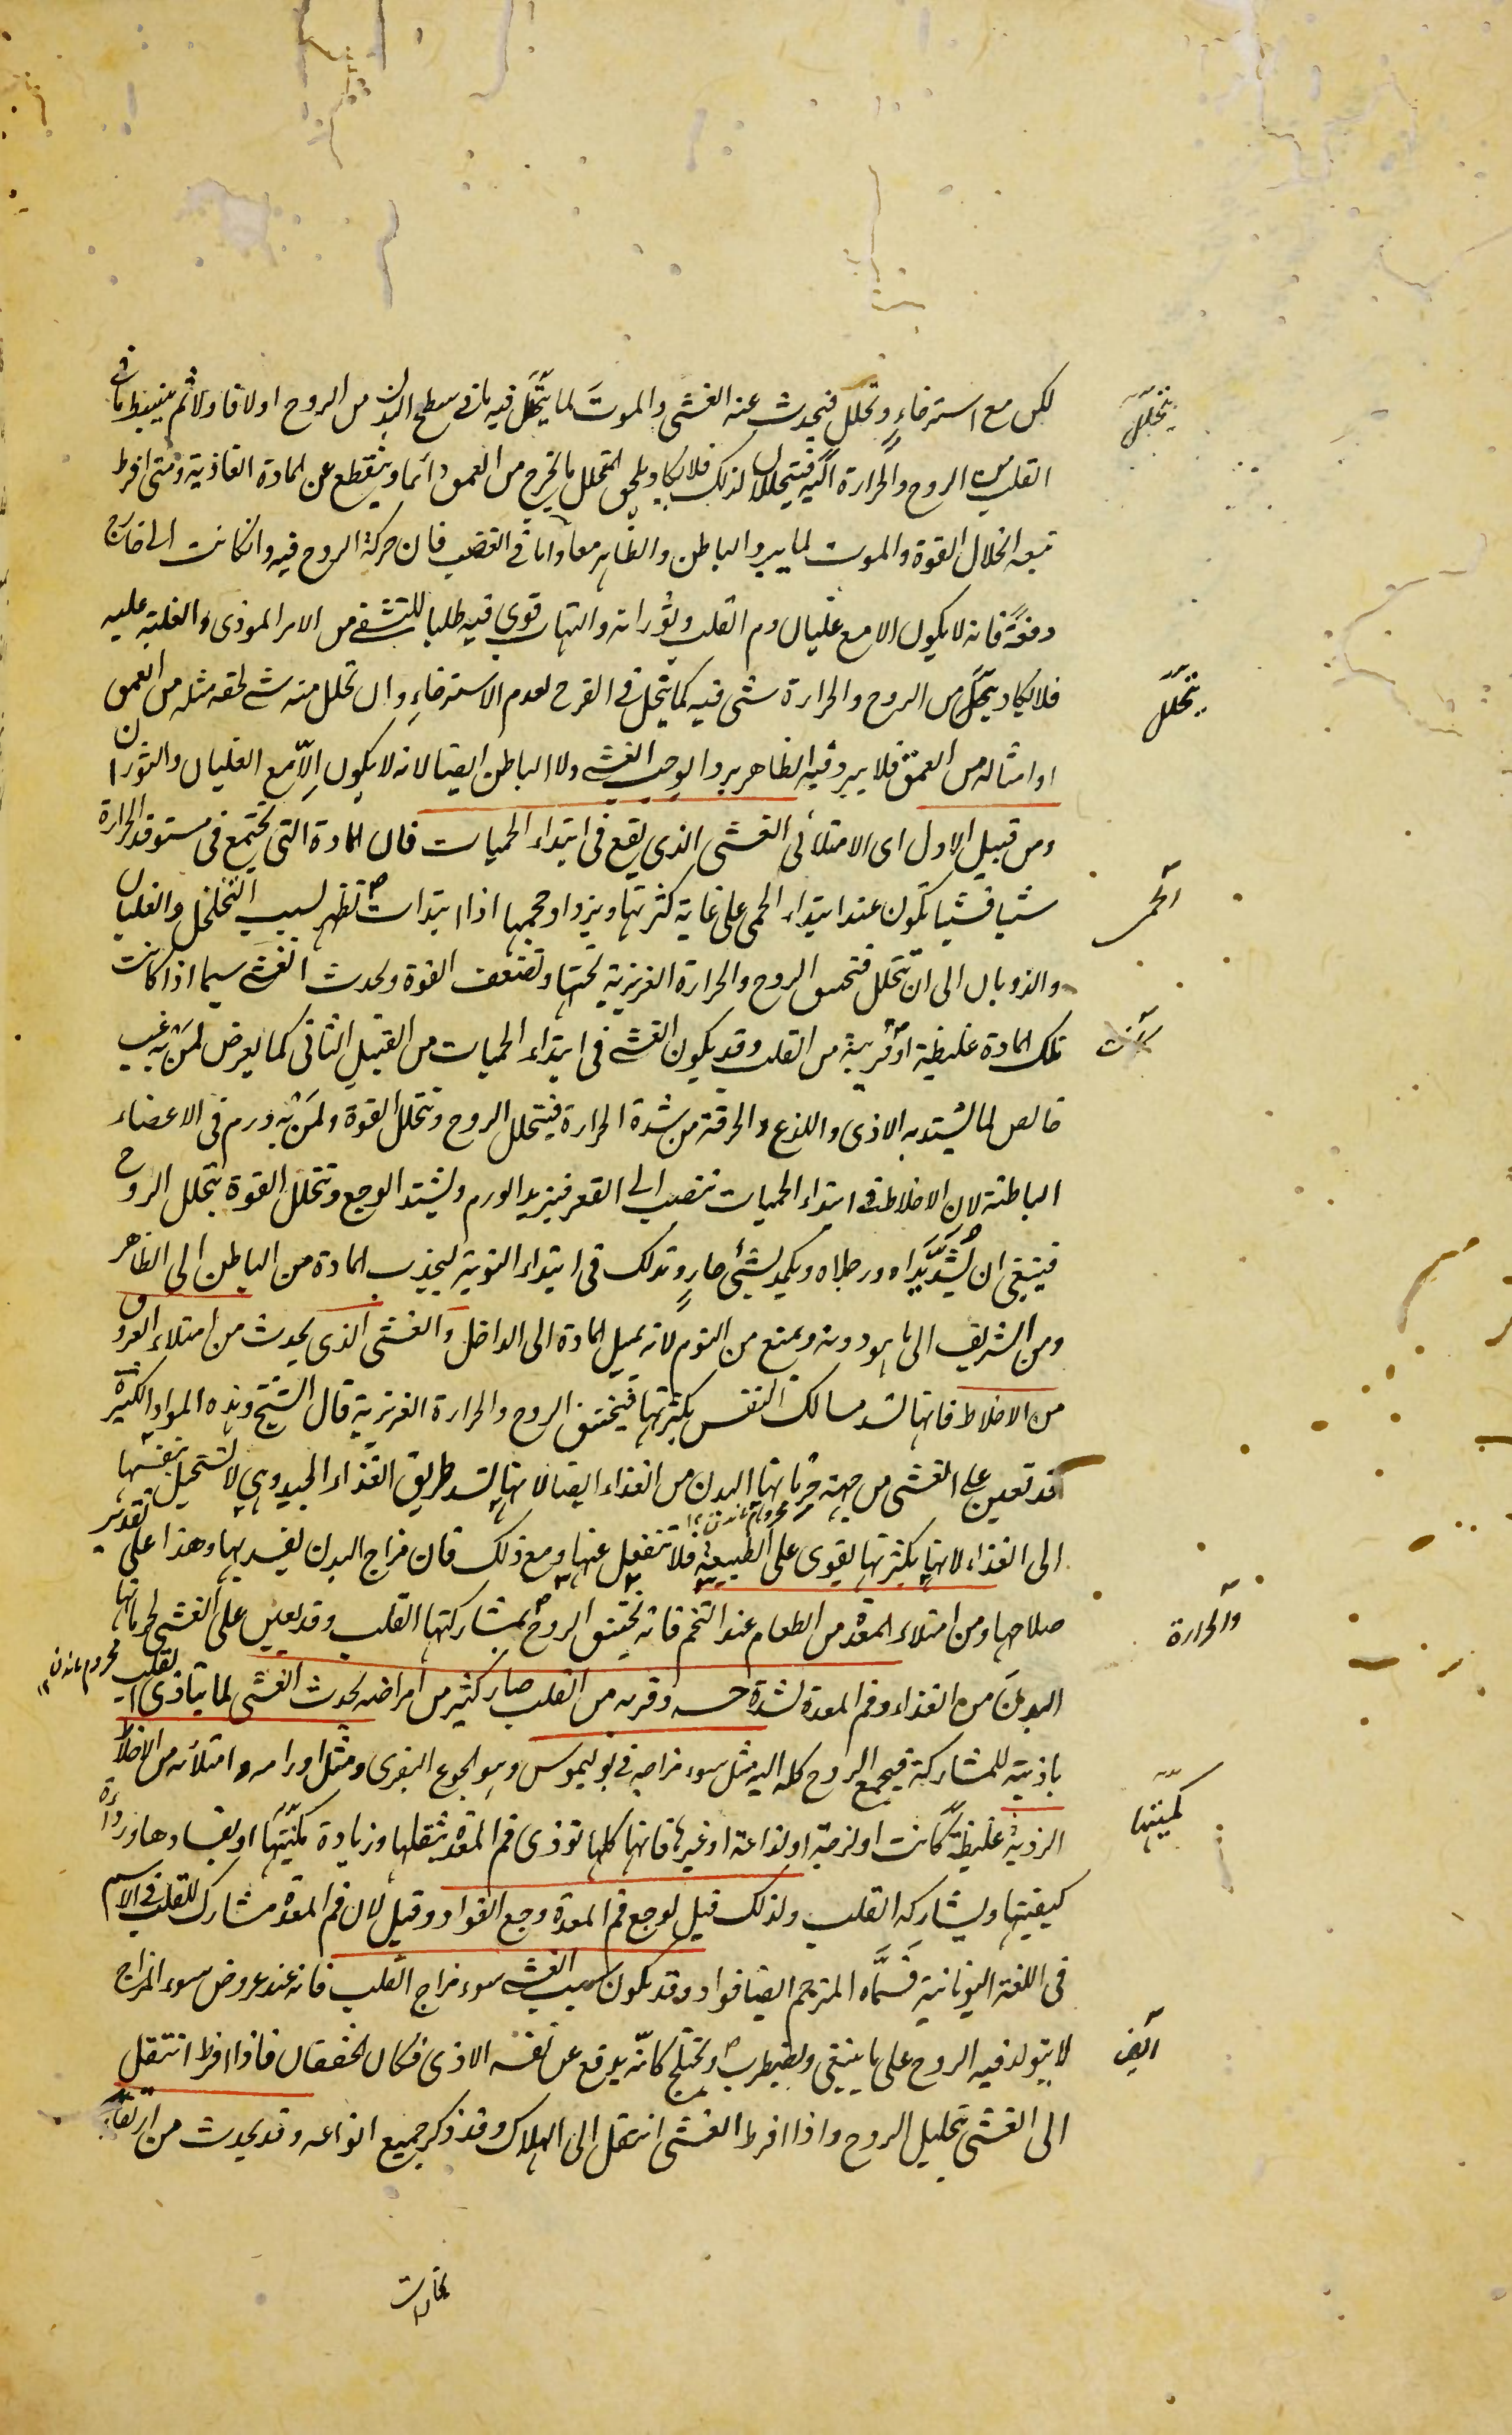 لكن مع استرخاء وتحلل فيحدث عنه الغشى والموت لما يتحلل فيه ما فى سطح البدن من الروح اولا فاولا ثم ينبسط ما فى
القلب من الروح والحرارة اليه فيتحللان لذلك فلا يكاد يلحق المتحلل ما يخرج من العمق دائما وينقطع عن المادة الغاذية ومتى افرط
تبعه انحلال القوة والموت لما يبرد الباطن والظاهر معا واما فى الغضب فان حركة الروح فيه وان كانت الى خارج
دفعة فانه لا يكون الا مع غليان دم القلب وثورانه والتهاب قوى فيه طلبا للتشفى من الامر الموذى والغلبة عليه
فلا يكاد يتحلل من الروح والحرارة شى فيه كما يتحلل فى الفرح لعدم الاسترخاء وان تحلل منه شى لحقه مثله من العمق
او امثاله من العمق فلا يبرد فيه الظاهر بردا يوجب الغشى ولا الباطن ايضا لانه لا يكون الا مع الغليان والثوران
ومن قبيل الاول اى الامتلائى الغشى الذى يقع فى ابتداء الحميات فان المادة التى تجتمع فى مستوقد الحرارة
شيا فشيا تكون عند ابتداء الحمى على غاية كثرتها ويزداد حجمها اذا ابتدات تظهر بسبب التخلخل والغليان
والذوبان الى ان تتحلل فتحسن الروح والحرارة الغريزية تحتها وتضعف القوة ويحدث الغشى سيما اذا كانت
تلك المادة غليظة او قريبة من القلب وقد يكون الغشى فى ابتداء الحميات من القبيل الثانى كما يعرض لمن به غب
خالص لما يشتد به الاذى واللذع والحرقة من شدة الحرارة فيتحلل الروح وتتحلل القوة ولمن به ورم فى الاعضاء
الباطنة لان الاخلاط فى ابتداء الحميات تنصب الى القعر فيزيد الورم ويشتد الوجع وتتحلل القوة بتحلل الروح
فينبغى ان يشد يداه ورجلاه ويكمد بشئ حار وتدلك فى ابتداء النوبة ليجذب المادة من الباطن الى الظاهر
ومن الشريف الى ما هو دونه ويمنع من النوم لانه يميل المادة الى الداخل والغشى الذى يحدث من امتلاء العروق
من الاخلاط فانها تسد مسالك النفس بكثرتها فيختنق الروح والحرارة الغريزية قال الشيخ وهذه المواد الكثيرة
قد تعين على الغشى من جهة حرمانها البدن من الغذاء ايضا لانها تسد طريق الغذاء الجيد وهى لا تستحيل بنفسها
الى الغذاء لانها بكثرتها يقوى على الطبيعة فلا تنفعل عنها ومع ذلك فان مزاج البدن يفسد بها وهذا على تقدير
صلاحها ومن امتلاء المعدة من الطعام عند التخم فانه تختنق الروح بمشاركتها القلب وقد يعين على الغشى لحرمانها
البدن من الغذاء وفم المعدة لشدة حسه وقربه من القلب صار كثير من امراضه يحدث الغشى لما يتاذى القلب
باذيته للمشاركة فيجمع الروح كله اليه مثل سوء مزاجه فى بوليموس وهو الجوع البقرى ومثل اورامه وامتلائه من الاخلاط
الردية غليظة كانت او لزجة او لذاعة او غيرها فانها كلها توذى فم المعدة بثقلها وزيادة كميتها او بفسادها ورداءة
كيفيتها ويشاركه القلب ولذلك قيل لوجع فم المعدة وجع الفواد وقيل لان فم المعدة مشارك للقلب فى الاسم
فى اللغة اليونانية فسماه المترجم ايضا فواد وقد يكون سبب الغشى سوء مزاج القلب فانه عند عروض سوء المزاج
لا يتولد فيه الروح على ما ينبغى ويضطرب ويختلج كانه يدفع عن نفسه الاذى فكان الخفقان فاذا افرط انتقل
الى الغشى بتحليل الروح واذا افرط الغشى انتقل الى الهلاك وقد ذكر جميع انواعه وقد يحدث من ارتقاء
بخارات
يتحلل
يتحلل
الحمى
كانت
والحرارة
كميتها